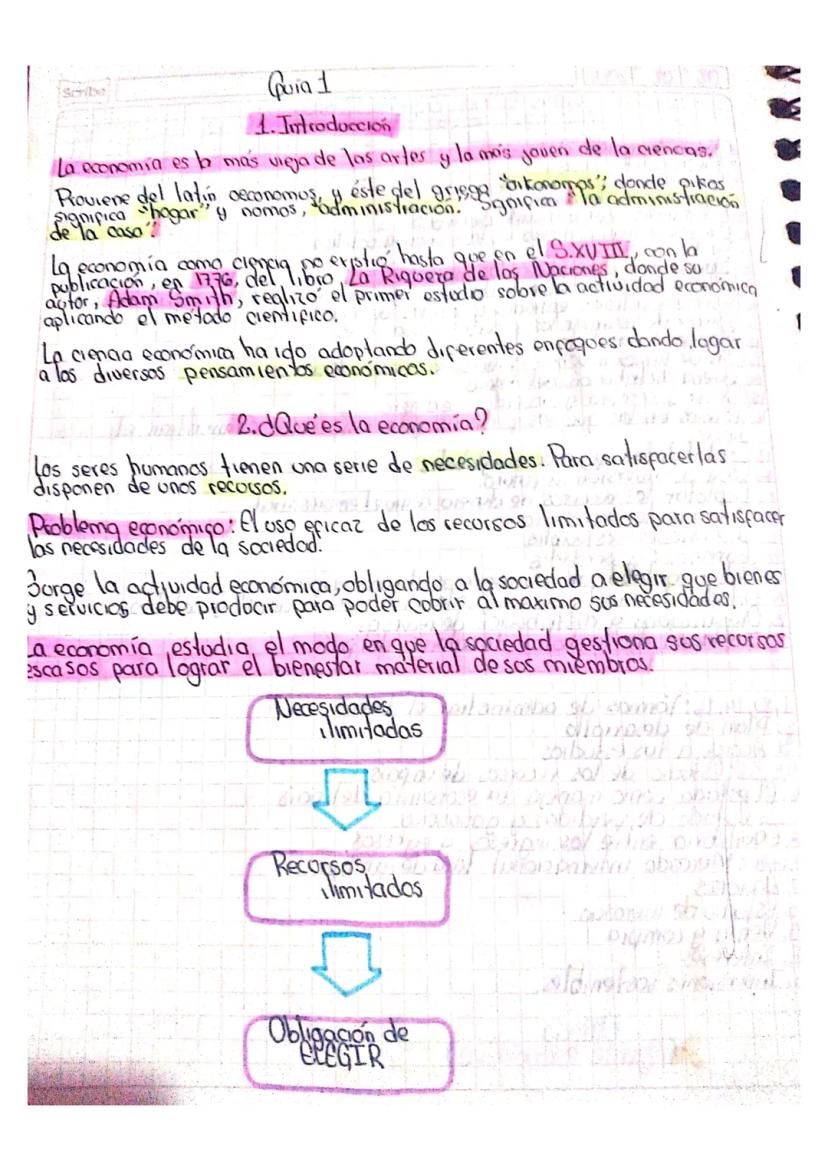 Scribe
Guia 1
1. Introducción
La economía es la más vieja de las artes y la más joven de la ciencias.
Proviene del latín oeconomus, y éste del griego "oikonomos"; donde oikos
significa "hogar" y nomos, "administración." Significa "la administración
de la casa".
La economía como ciencia no existió hasta que en el S.XVIII, con la
publicación, en 1776, del libro, La Riqueza de las Naciones, donde su
autor, Adam Smith, realizó el primer estudio sobre la actividad económica
aplicando el método científico.
La ciencia económica ha ido adoptando diferentes enfoques dando lugar
a los diversos pensamientos económicos.
2. ¿Qué es la economía?
Los seres humanos tienen una serie de necesidades. Para satisfacerlas
disponen de unos recursos.
Problema económico: El uso eficaz de los recursos limitados para satisfacer
las necesidades de la sociedad.
Surge la actividad económica, obligando a la sociedad a elegir que bienes
y servicios debe producir para poder cubrir al maximo sus necesidades.
La economía estudia el modo en que la sociedad gestiona sus recursos
escasos para lograr el bienestar material de sus miembros.
Necesidades
ilimitadas
Recursos
ilimitados
Obligación de
ELEGIR